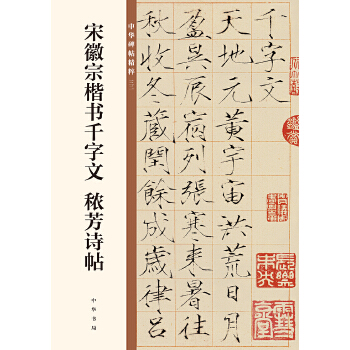 中华碑帖精粹
宋徽宗楷书千字文 秾芳诗帖
中华书局
千字文
天地元黄宇宙洪荒日月
盈昃辰宿列張寒来暑往
秋收冬藏閏餘成歲律吕